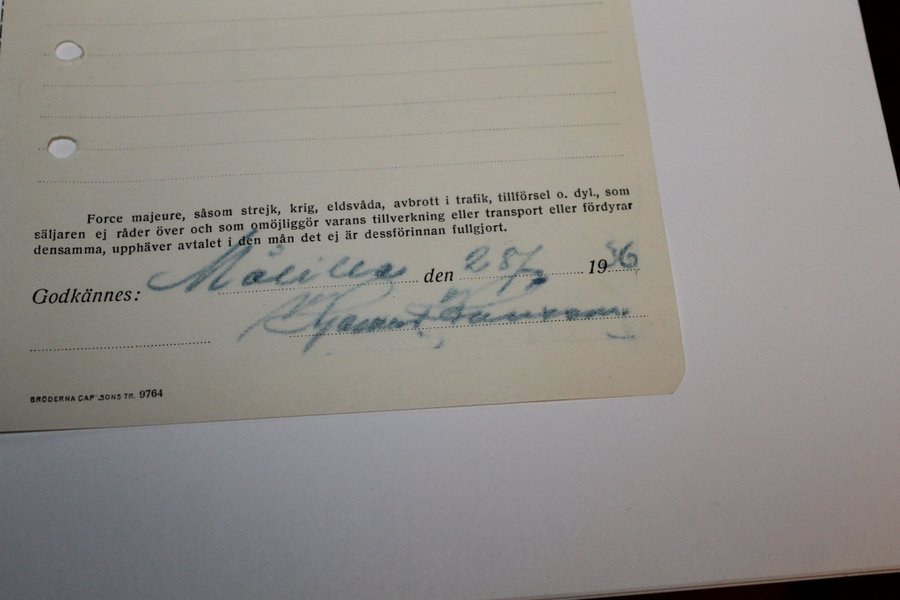 Force majeure, såsom strejk, krig, eldsvåda, avbrott i trafik, tillförsel o. dyl., som
säljaren ej råder över och som omöjliggör varans tillverkning eller transport eller fördyrar
densamma, upphäver avtalet i den mån det ej är dessförinnan fullgjort.
Godkännes: Målilla den 28/ 1936
BRÖDERNA CAR SONS TR. 9764